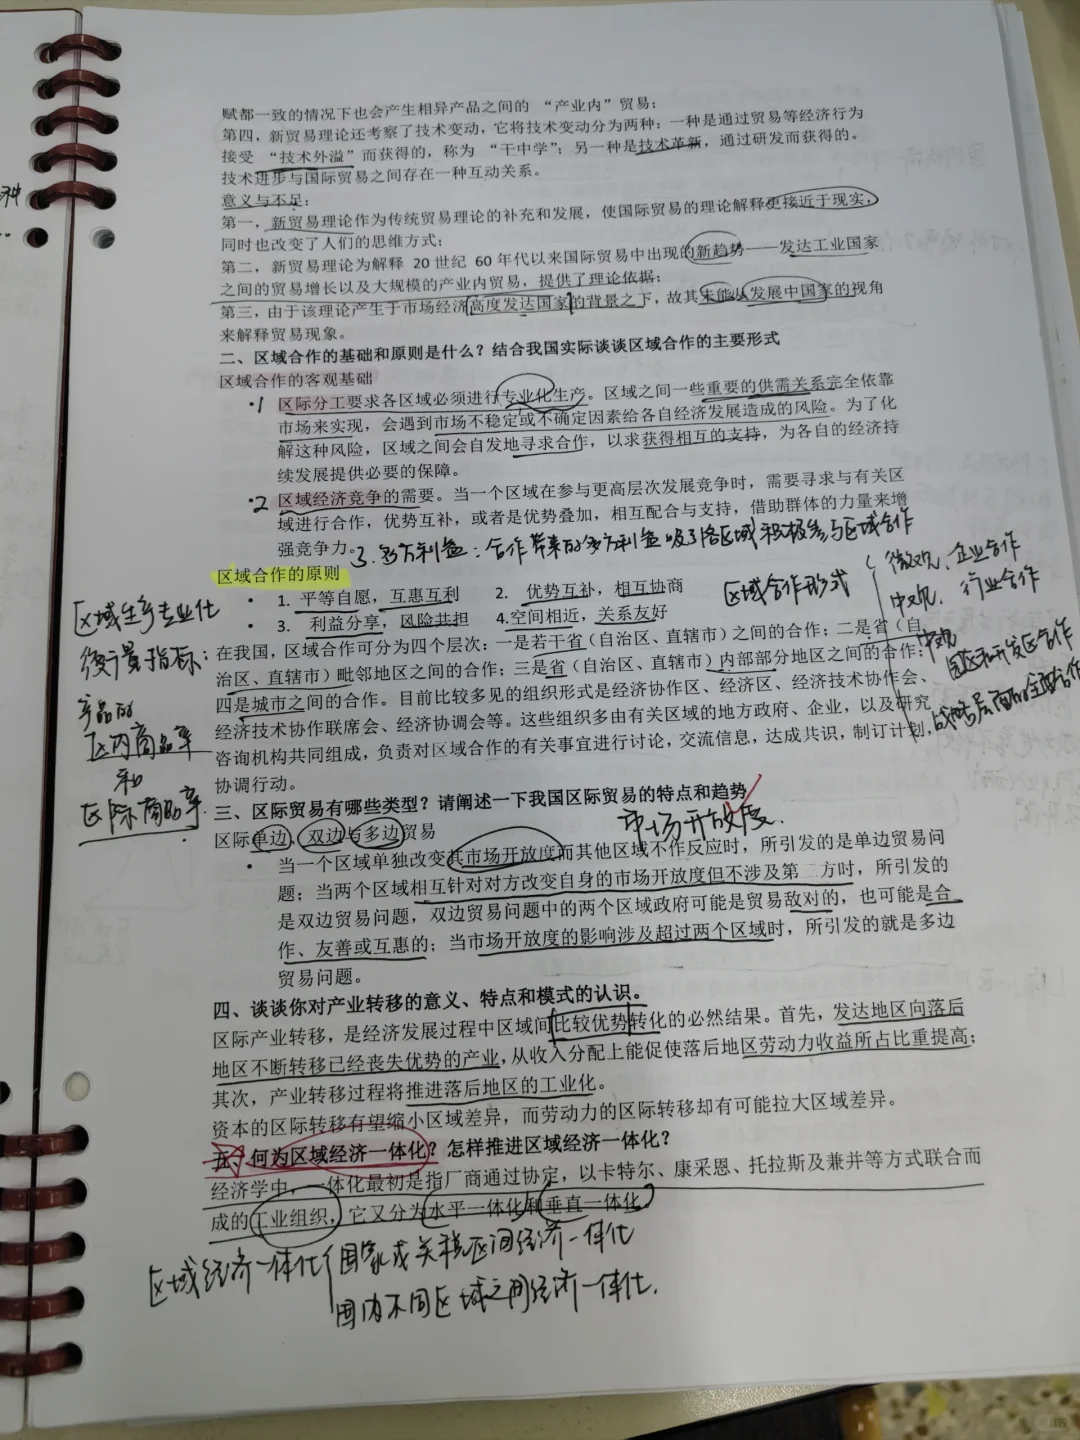 赋都一致的情况下也会产生相异产品之间的 “产业内”贸易；
第四，新贸易理论还考察了技术变动，它将技术变动分为两种：一种是通过贸易等经济行为
接受 “技术外溢”而获得的，称为 “干中学”；另一种是技术革新，通过研发而获得的。
技术进步与国际贸易之间存在一种互动关系。
意义与不足：
第一，新贸易理论作为传统贸易理论的补充和发展，使国际贸易的理论解释更接近于现实，
同时也改变了人们的思维方式；
第二，新贸易理论为解释 20 世纪 60 年代以来国际贸易中出现的新趋势——发达工业国家
之间的贸易增长以及大规模的产业内贸易，提供了理论依据；
第三，由于该理论产生于市场经济高度发达国家的背景之下，故其未能从发展中国家的视角
来解释贸易现象。
二、区域合作的基础和原则是什么？结合我国实际谈谈区域合作的主要形式
区域合作的客观基础
•1 区际分工要求各区域必须进行专业化生产。区域之间一些重要的供需关系完全依靠
市场来实现，会遇到市场不稳定或不确定因素给各自经济发展造成的风险。为了化
解这种风险，区域之间会自发地寻求合作，以求获得相互的支持，为各自的经济持
续发展提供必要的保障。
•2 区域经济竞争的需要。当一个区域在参与更高层次发展竞争时，需要寻求与有关区
域进行合作，优势互补，或者是优势叠加，相互配合与支持，借助群体的力量来增
强竞争力。
3.多方利益：合作带来的多方利益吸引各区域积极参与区域合作
区域合作的原则
• 1. 平等自愿，互惠互利 2. 优势互补，相互协商
• 3. 利益分享，风险共担 4.空间相近，关系友好
区域合作形式
微观、企业合作
中观、行业合作
园区和开发区合作
战略层面的全面合作
区域生产专业化
衡量指标：
产品的
区内商品率
和
区际商品率.
在我国，区域合作可分为四个层次：一是若干省（自治区、直辖市）之间的合作；二是省（自
治区、直辖市）毗邻地区之间的合作；三是省（自治区、直辖市）内部部分地区之间的合作；
四是城市之间的合作。目前比较多见的组织形式是经济协作区、经济区、经济技术协作会、
经济技术协作联席会、经济协调会等。这些组织多由有关区域的地方政府、企业，以及研究
咨询机构共同组成，负责对区域合作的有关事宜进行讨论，交流信息，达成共识，制订计划，
协调行动。
三、区际贸易有哪些类型？请阐述一下我国区际贸易的特点和趋势
市场开放度.
区际单边、双边与多边贸易
• 当一个区域单独改变其市场开放度而其他区域不作反应时，所引发的是单边贸易问
题；当两个区域相互针对对方改变自身的市场开放度但不涉及第三方时，所引发的
是双边贸易问题，双边贸易问题中的两个区域政府可能是贸易敌对的，也可能是合
作、友善或互惠的；当市场开放度的影响涉及超过两个区域时，所引发的就是多边
贸易问题。
四、谈谈你对产业转移的意义、特点和模式的认识。
区际产业转移，是经济发展过程中区域间比较优势转化的必然结果。首先，发达地区向落后
地区不断转移已经丧失优势的产业，从收入分配上能促使落后地区劳动力收益所占比重提高；
其次，产业转移过程将推进落后地区的工业化。
资本的区际转移有望缩小区域差异，而劳动力的区际转移却有可能拉大区域差异。
五、何为区域经济一体化？怎样推进区域经济一体化？
经济学中，一体化最初是指厂商通过协定，以卡特尔、康采恩、托拉斯及兼并等方式联合而
成的工业组织，它又分为水平一体化和垂直一体化。
区域经济一体化
国家或关税区间经济一体化
国内不同区域之间经济一体化.